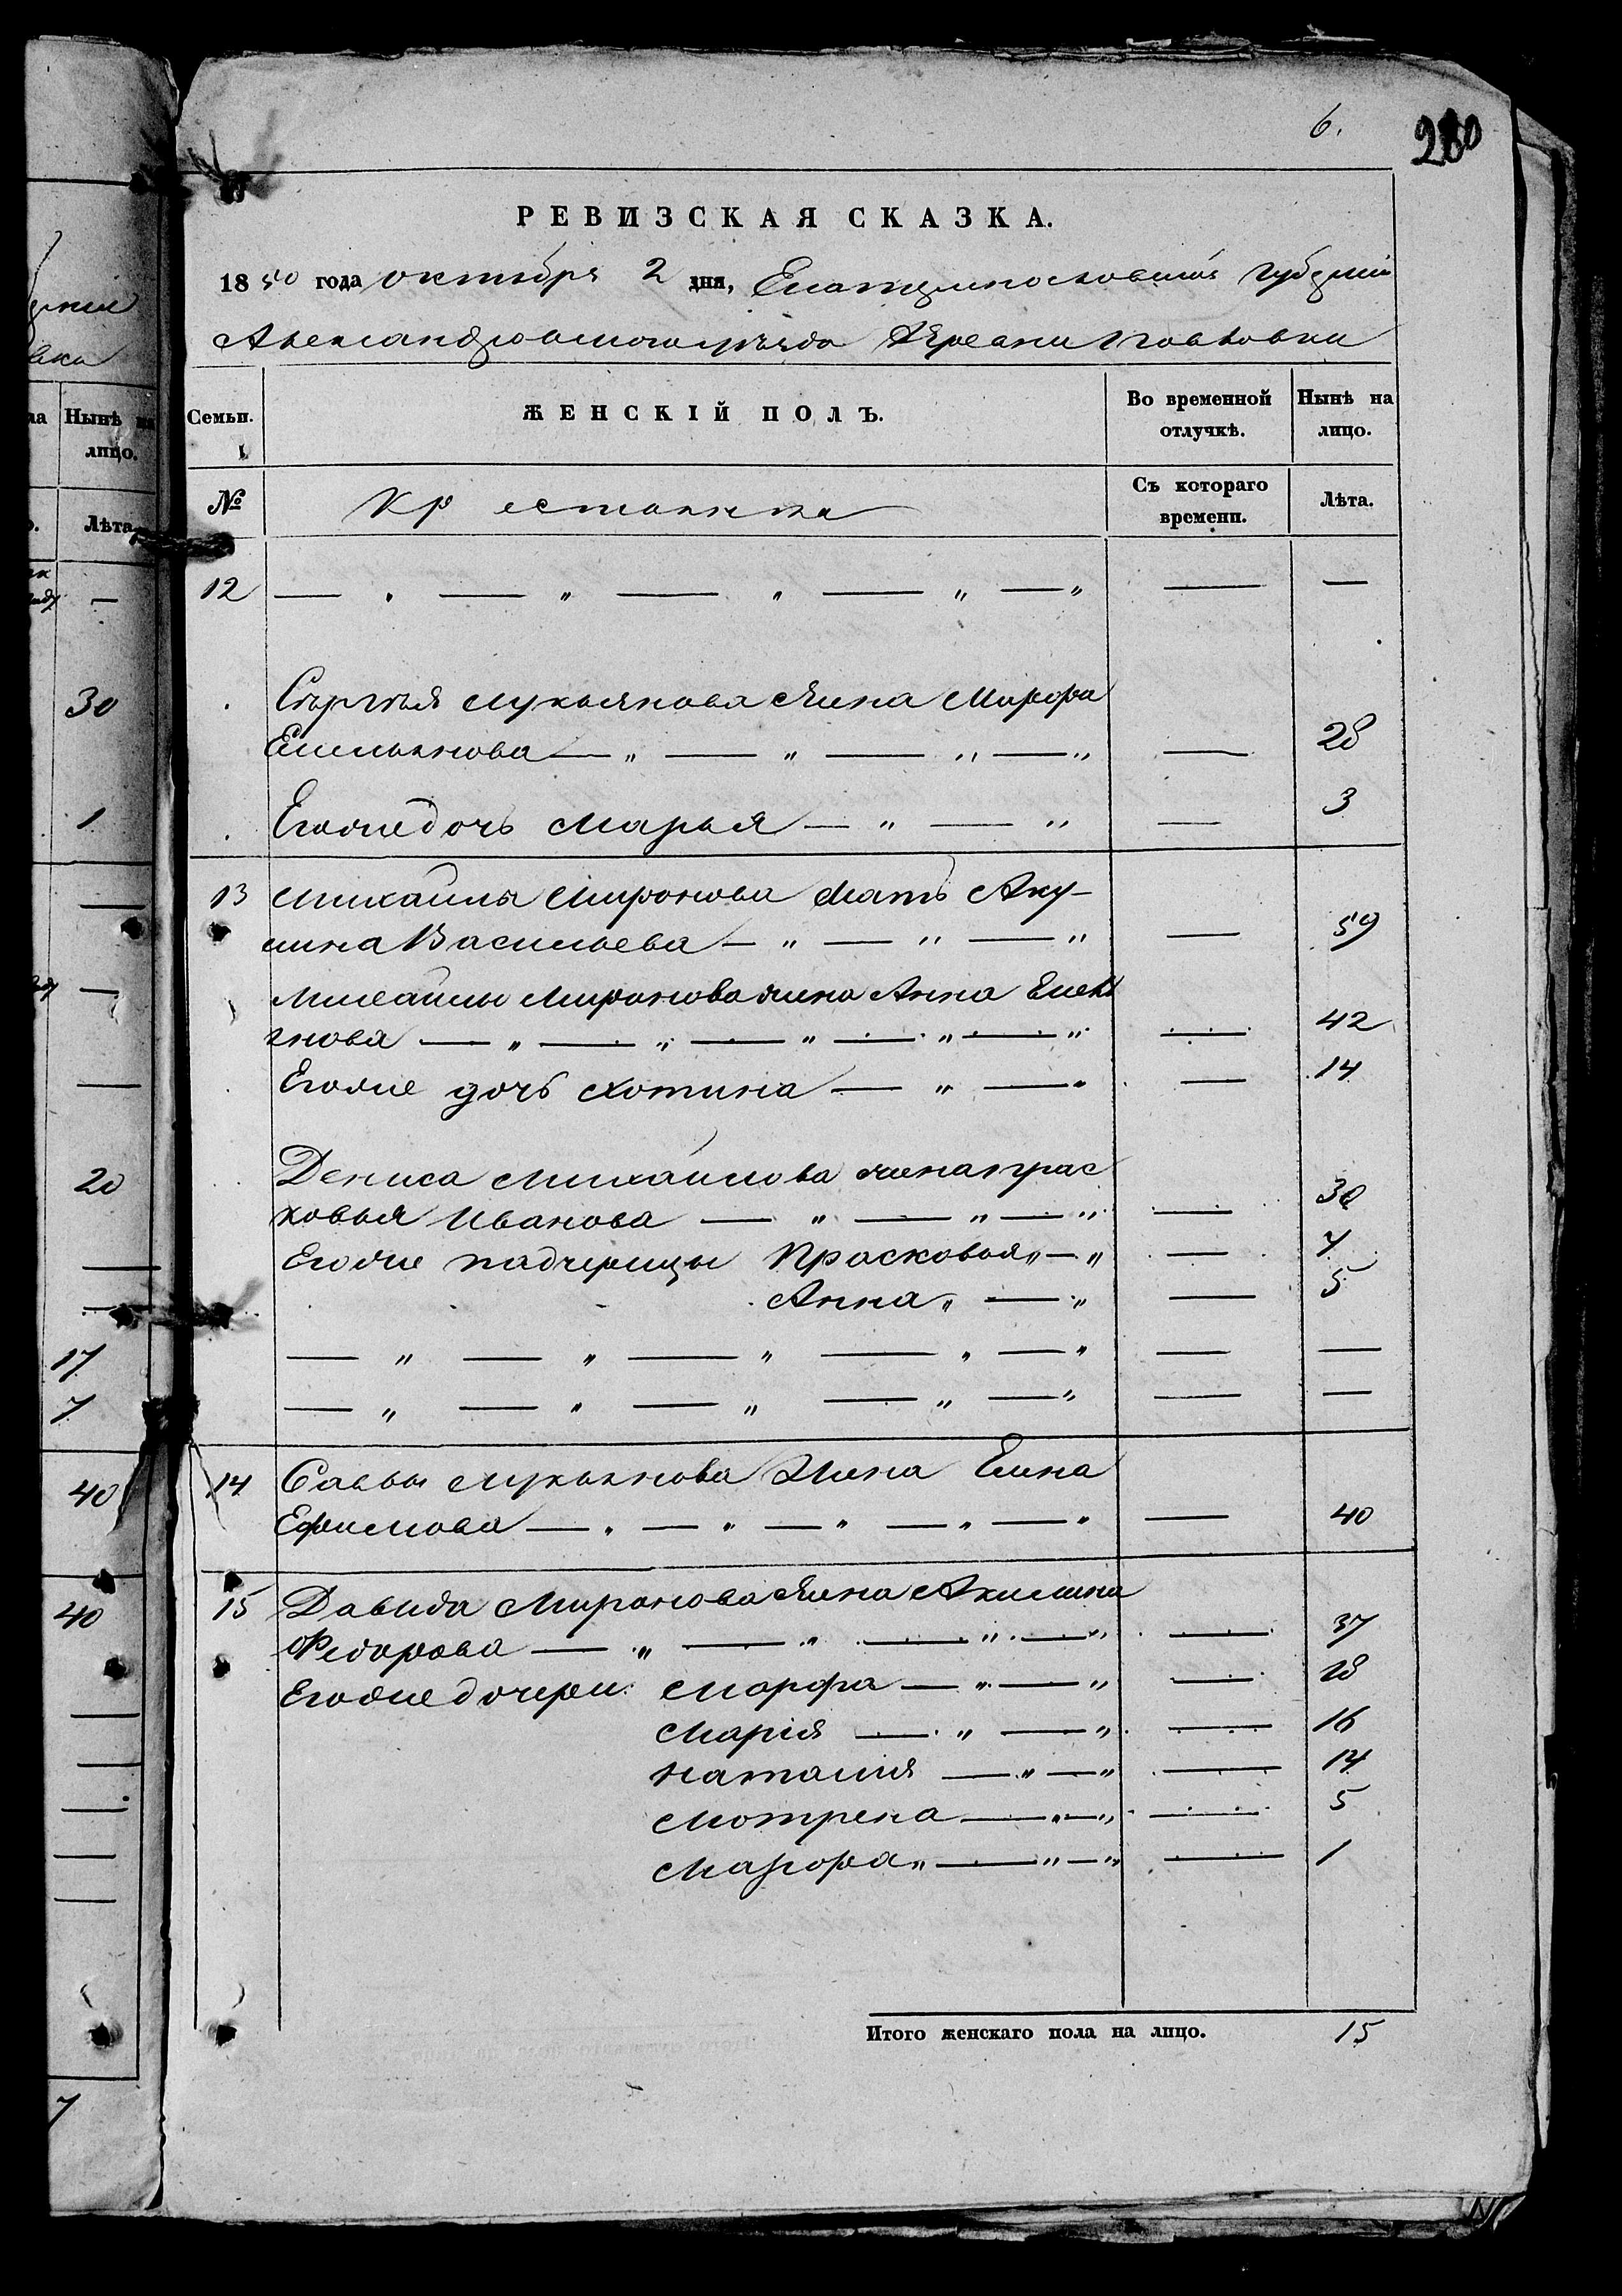 6.
280
РЕВИЗСКАЯ СКАЗКА.
1850 года октября 2 дня, Екатеринославской губернии
Александровского уезда деревни Павловки
Семьи. ЖЕНСКІЙ ПОЛЪ. Во временной отлучкѣ. Нынѣ на лицо.
№ Крестьянка Съ котораго времени. Лѣта.
12 — „ — „ — „ — „ — „ — —
Сергѣя Лукьянова жена Марфа
Емельянова — „ — „ — „ — „ — 28
Его же дочь Марья — „ — „ — 3
13 Михайлы Миронова мать Аку-
лина Васильева — „ — „ — „ — 59
Михайлы Миронова жена Анна
нова — „ — „ — „ — „ — „ — 42
Его же дочь Хотина — „ — „ — 14
Дениса Михайлова жена Прас
ковья Иванова — „ — „ — „ — 30
Его же падчерицы Прасковья „ — „ — 7
Анна „ — „ — 5
— „ — „ — „ — „ — „ — —
— „ — „ — „ — „ — „ — —
14 Савы Лукьянова жена Елена
Ефимова — „ — „ — „ — „ — „ — 40
15 Давида Миронова жена Акилина
Федорова — „ — „ — „ — „ — 37
Его же дочери: Марфа — „ — „ — 18
Марія — „ — „ — 16
Наталия — „ — „ — 14
Мотрена — „ — „ — 5
Марфа „ — „ — „ — 1
Итого женскаго пола на лицо. 15
Нынѣ на
лицо.
Лѣта
—
30
1
—
—
—
20
—
—
17
7
40
40
—
—
—
—
—
7